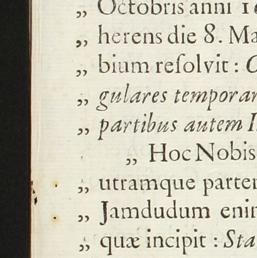 „ Octobris anni
„ herens die 8. Ma
„ bium reſolvit :
„ gulares temporar
„ partibus autem
„ Hoc Nobis
„ utramque parte
„ Jamdudum eni
„ quæ incipit : Sta